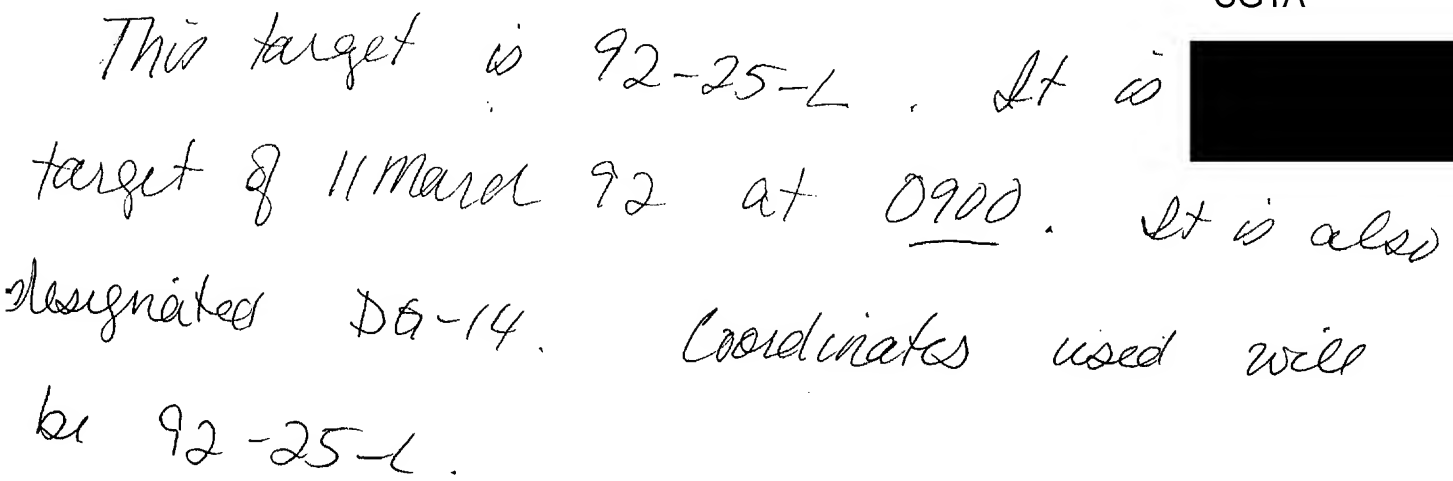 SG1A
This target is 92-25-L. It is
target of 11 March 92 at 0900. It is also
designated DG-14. Coordinates used will
be 92-25-L.